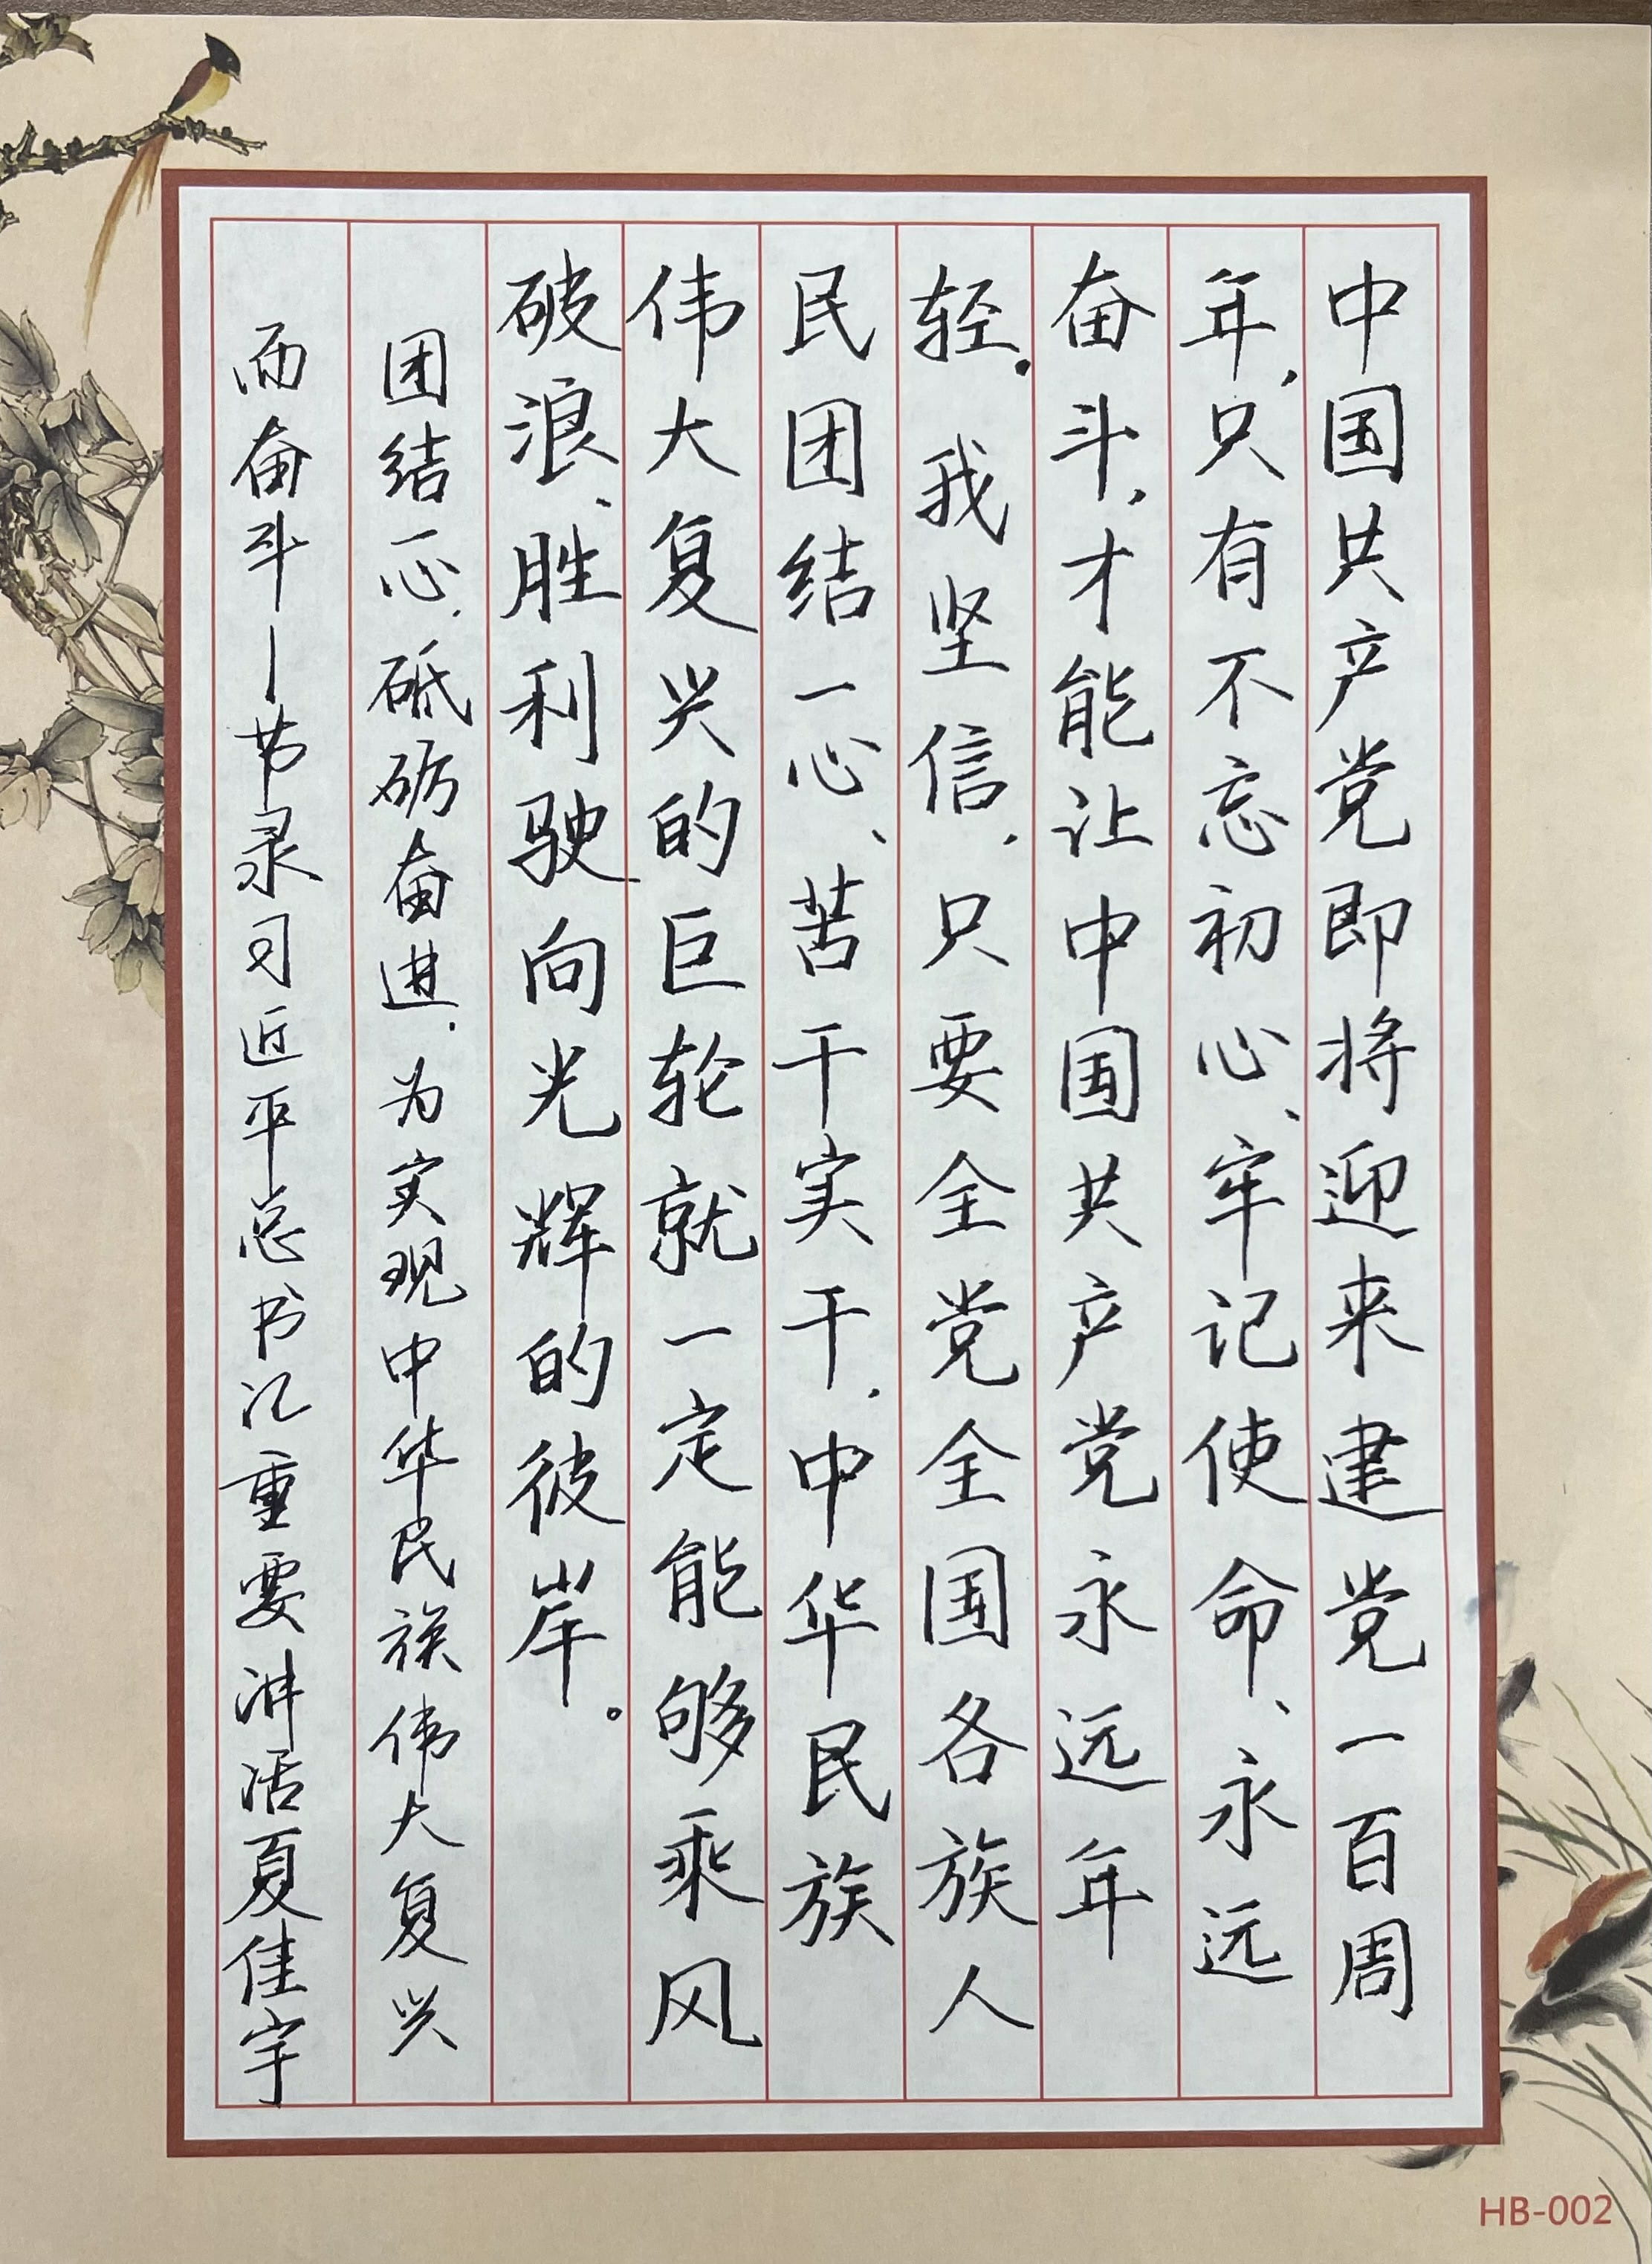 中国共产党即将迎来建党一百周
年，只有不忘初心、牢记使命、永远
奋斗，才能让中国共产党永远年
轻。我坚信，只要全党全国各族人
民团结一心、苦干实干，中华民族
伟大复兴的巨轮就一定能够乘风
破浪、胜利驶向光辉的彼岸。
团结一心，砥砺奋进，为实现中华民族伟大复兴
而奋斗—节录习近平总书记重要讲话夏佳宇
HB-002